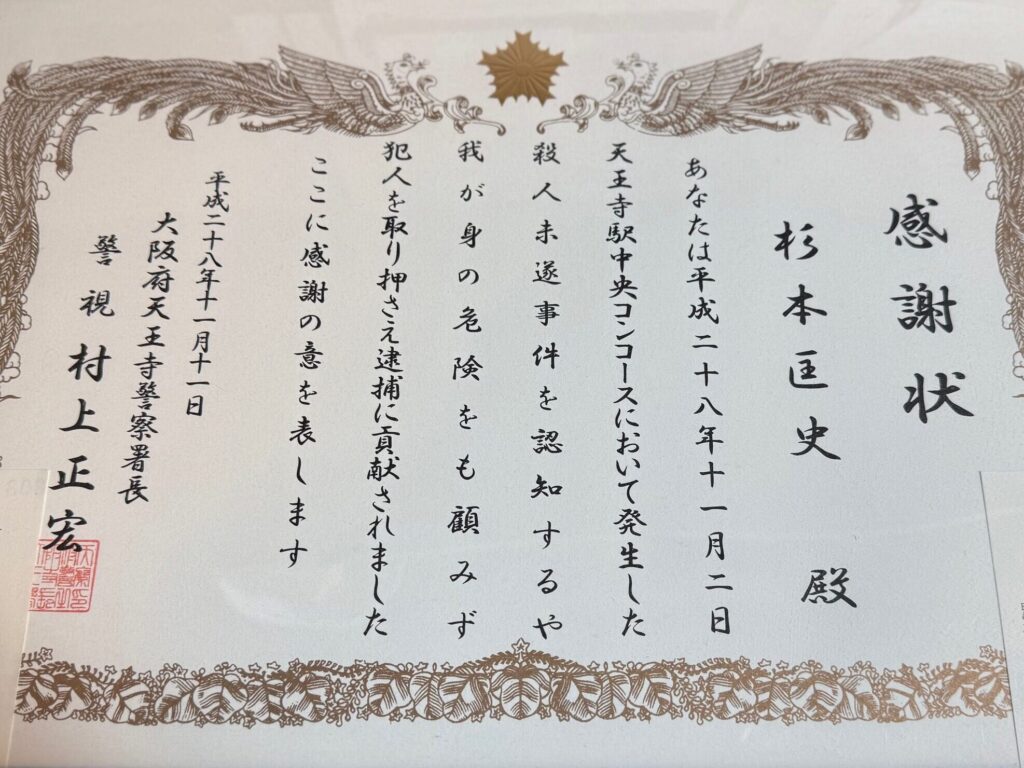 感謝状
杉本匡史 殿
あなたは平成二十八年十一月二日
天王寺駅中央コンコースにおいて発生した
殺人未遂事件を認知するや
我が身の危険をも顧みず
犯人を取り押さえ逮捕に貢献されました
ここに感謝の意を表します
平成二十八年十一月十一日
大阪府天王寺警察署長
警視 村上正宏